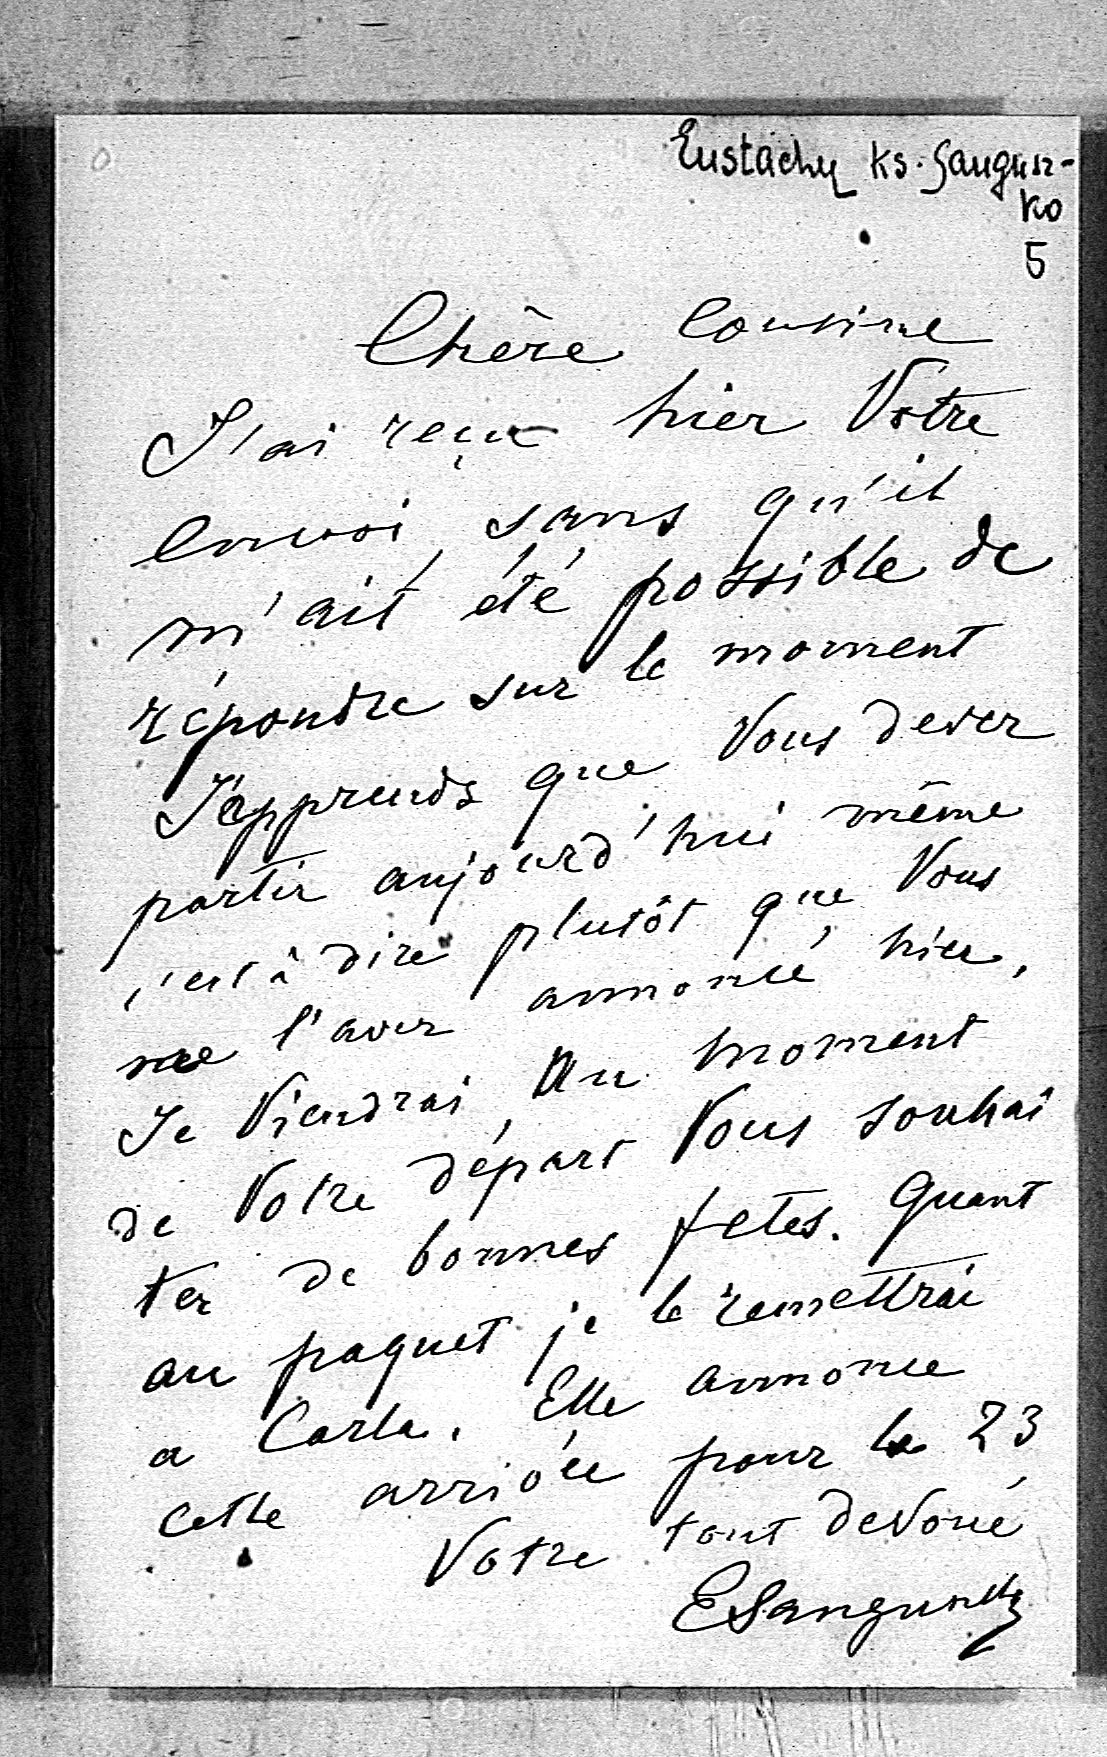 Eustachy Ks. Sangusz-
ko
5
Chère Cousine
J'ai reçu hier Votre
envoi, sans qu'il
m'ait été possible de
répondre sur le moment
J'apprends que Vous devez
partir aujourd'hui même
c'est à dire plutôt que Vous
ne l'avez annoncé hier,
Je Viendrai, au moment
de Votre départ Vous souhai
ter de bonnes fetes. Quant
au paquet je le remettrai
a Carla. Elle annonce
cette arrivée pour le 23
Votre tout devoué
ESanguszko